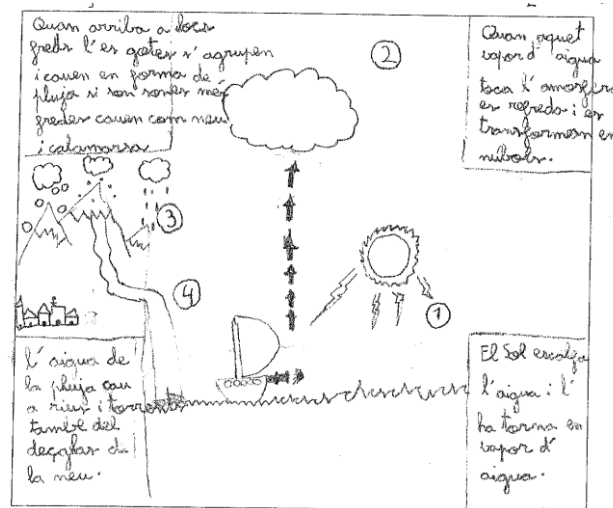 Quan arriba a llocs
freds l'es gotes s'agrupen
i cauen en forma de
pluja si son sones més
gredes cauen com neu
i calamarsa
Quan aquet
vapor d'aigua
toca l'amorfera
es refreda i es
transformen en
núbols.
2
3
4
1
l'aigua de
la pluja cau
a rius i torrents
també del
deçglas de
la neu.
El Sol escalfa
l'aigua i l'
ha torna en
vapor d'
aigua.